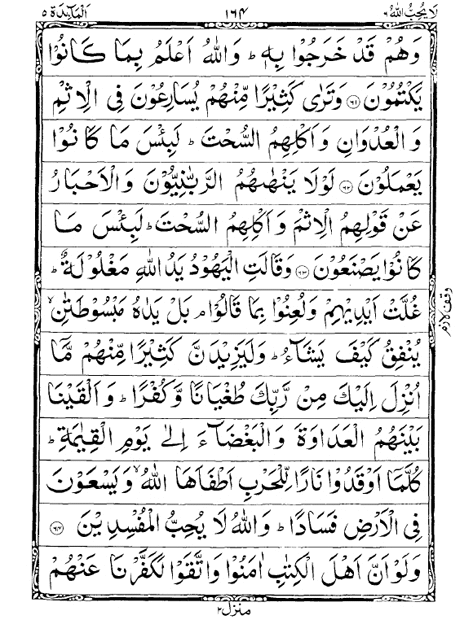 لا يحب الله ٦ ١٦٤ المآئدة ٥
وَهُمْ قَدْ خَرَجُوْا بِهٖ ؕ وَاللّٰهُ اَعْلَمُ بِمَا كَانُوْا
يَكْتُمُوْنَ ﴿۶۱﴾ وَتَرٰى كَثِيْرًا مِّنْهُمْ يُسَارِعُوْنَ فِى الْاِثْمِ
وَالْعُدْوَانِ وَاَكْلِهِمُ السُّحْتَ ؕ لَبِئْسَ مَا كَانُوْا
يَعْمَلُوْنَ ﴿۶۲﴾ لَوْلَا يَنْهٰىهُمُ الرَّبّٰنِيُّوْنَ وَالْاَحْبَارُ
عَنْ قَوْلِهِمُ الْاِثْمَ وَاَكْلِهِمُ السُّحْتَ ؕ لَبِئْسَ مَا
كَانُوْا يَصْنَعُوْنَ ﴿۶۳﴾ وَقَالَتِ الْيَهُوْدُ يَدُ اللّٰهِ مَغْلُوْلَةٌ ؕ
غُلَّتْ اَيْدِيْهِمْ وَلُعِنُوْا بِمَا قَالُوْا ۘ بَلْ يَدٰهُ مَبْسُوْطَتٰنِ ۙ
وقف لازم
يُنْفِقُ كَيْفَ يَشَآءُ ؕ وَلَيَزِيْدَنَّ كَثِيْرًا مِّنْهُمْ مَّاۤ
اُنْزِلَ اِلَيْكَ مِنْ رَّبِّكَ طُغْيَانًا وَّكُفْرًا ؕ وَاَلْقَيْنَا
بَيْنَهُمُ الْعَدَاوَةَ وَالْبَغْضَآءَ اِلٰى يَوْمِ الْقِيٰمَةِ ؕ
كُلَّمَاۤ اَوْقَدُوْا نَارًا لِّلْحَرْبِ اَطْفَاَهَا اللّٰهُ ۙ وَيَسْعَوْنَ
فِى الْاَرْضِ فَسَادًا ؕ وَاللّٰهُ لَا يُحِبُّ الْمُفْسِدِيْنَ ﴿۶۴﴾
وَلَوْ اَنَّ اَهْلَ الْكِتٰبِ اٰمَنُوْا وَاتَّقَوْا لَكَفَّرْنَا عَنْهُمْ
منزل ٢